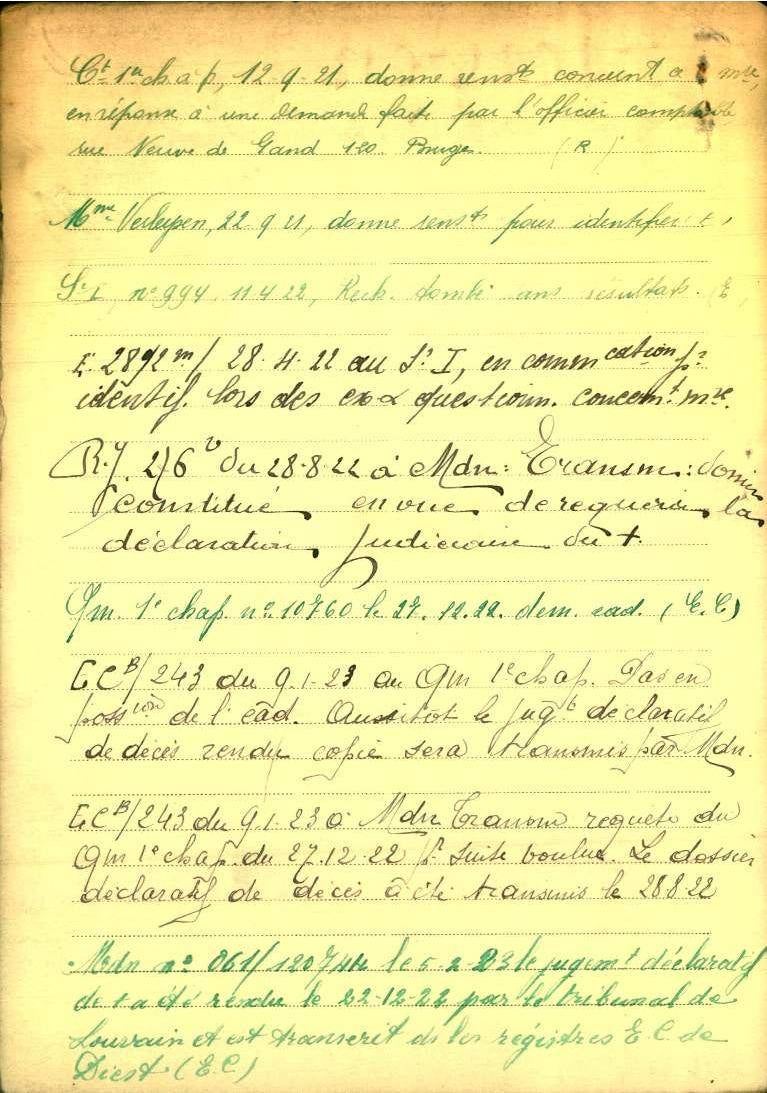 Ct 1er chap, 12-9-21, donne rensts concernt a mre,
en réponse à une demande faite par l'officier comptable
rue Neuve de Gand 120 Bruges. (R)
Mme Verleyen, 22 9 21, donne renste pour identifier t,
St I, no 994, 11 4 22, Rech. tombe sans résultats. (E
E 2892m/ 28.4.22 au St I, en commcation pr
identif. lors des ex questionn. concernt mre.
R.J. 2/6v du 28-8-22 à Mdn: Transm: domin
constitué en vue de requérir la
déclaration judiciaire du +.
Qm. 1e chap. no 10760 le 27.12.22. dem. ead. (E.C)
E CB/243 du 9.1-23 au Qm 1e chap. Pas en
possion de l' ead. Aussitôt le jugt declaratif
de décès rendu copie sera transmis par Mdn.
E CB/243 du 9.1.23 à Mdn Transm requete du
Qm 1e chap. du 27.12-22 pr suite voulue. Le dossier
déclaratif de décès a été transmis le 28-8-22
Mdn no 061/120744 le 5-2-23 le jugemt déclaratif
de + a été rendu le 22-12-22 par le tribunal de
Louvain et est transcrit ds les régistres E.C. de
Diest (E.C)